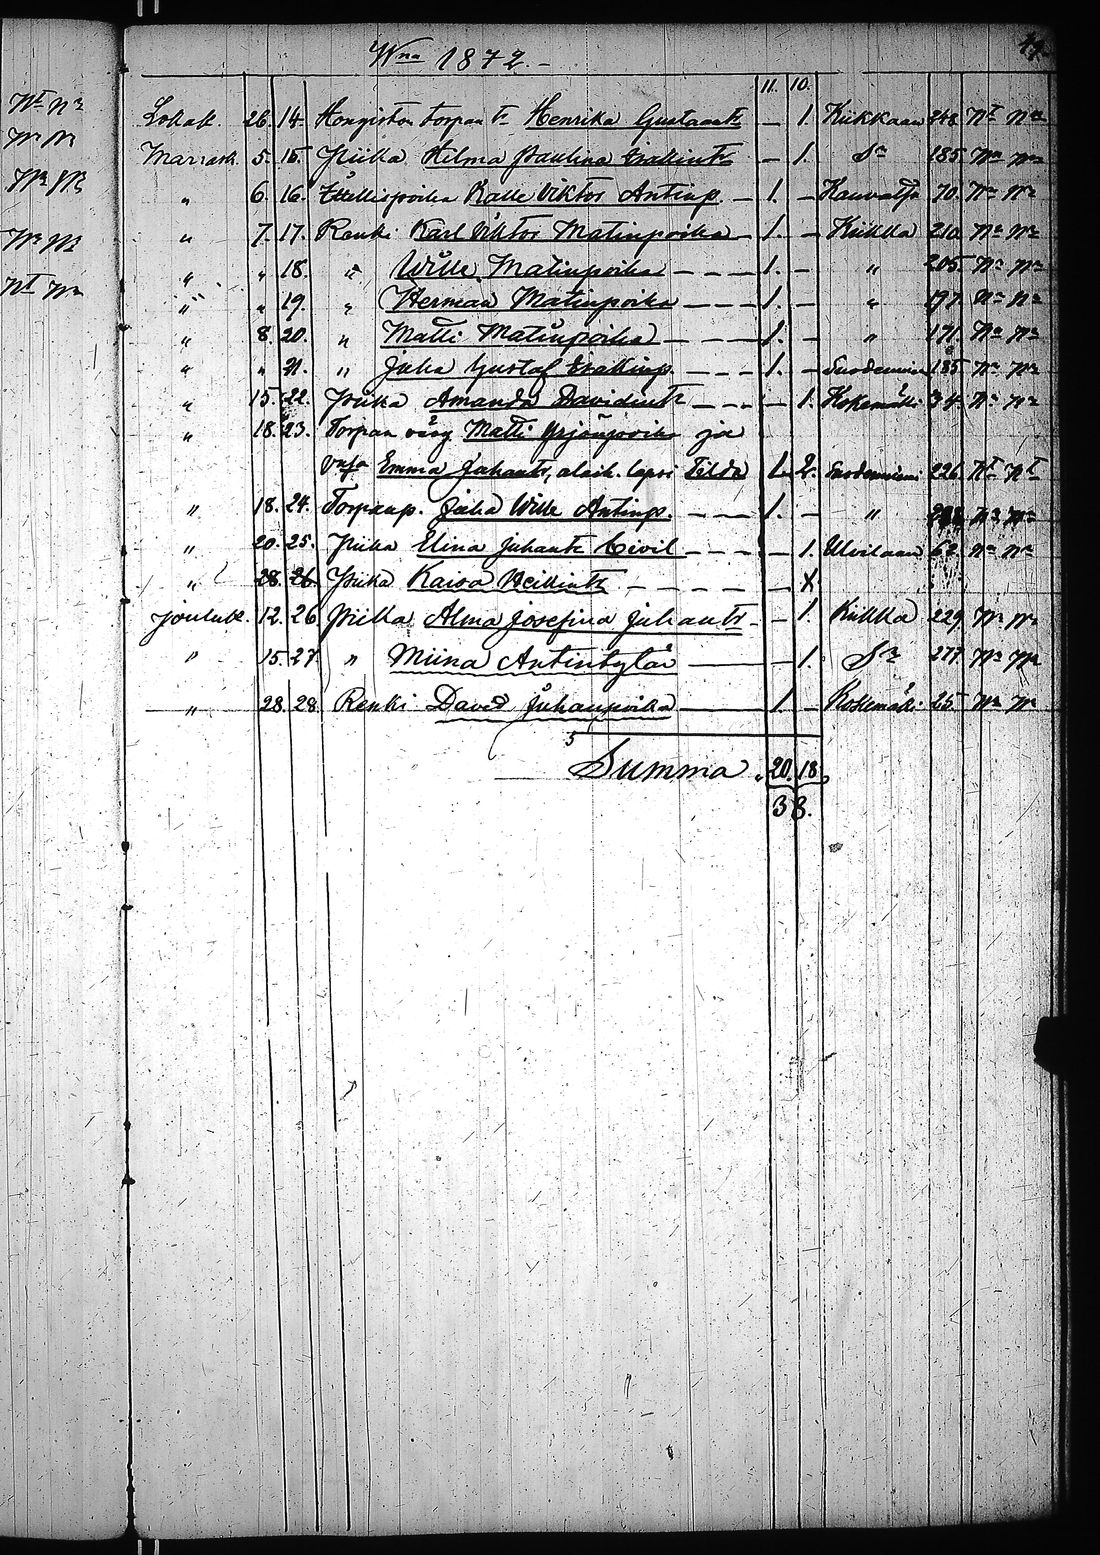 Wna 1872.
11. 10.
Lokak. 26. 14. Hongiston torpan tr Henrika Gustaantr — 1. Kiikkaan 248. Nt Na
Marrask. 5. 15. Piika Hilma Paulina Erkkintr — 1. Sa 185. Na Na
" 6. 16. Ittellispoika Kalle Viktor Antinp. — 1. — Kauvatsa 70. Na Na
" 7. 17. Renki Karl Viktor Matinpoika — 1. — Kiikka 210. Na Na
" " 18. " Wille Matinpoika — — — 1. — " 205. Na Na
" " 19. " Herman Matinpoika — — — 1. — " 197. Na Na
" 8. 20. " Matti Matinpoika — — — 1. — " 171. Na Na
" " 21. " Juha Gustaf Erkkinp. — — — 1. — Suodenniemi 185 Na Na
" 15. 22. Piika Amanda Davidintr — — — 1. Kokemäki 34. Na Na
" 18. 23. Torpan väg Matti Yrjönpoika ja
vmo Emma Juhantr, alaik. lapsi Tilda 1. 2. Suodenniemi 226. Nt Nt
" 18. 24. Torpanp. Juha Wille Antinp. — — — 1. — " Na Na
" 20. 25. Piika Elina Juhantr Civil — — — 1. Ulvilaan 62. Na Na
" 28. 26. Piika Kaisa Heikintr — — — X
Jouluk. 12. 26 Piika Alma Josefina Juhantr. — 1. Kiikka 229. Na Na
" 15. 27. " Miina Antintytär — 1. Sa 277. Na Na
" 28. 28. Renki David Juhanpoika — 1. — Kokemäki 25. Na Na
5
Summa 20. 18.
38.